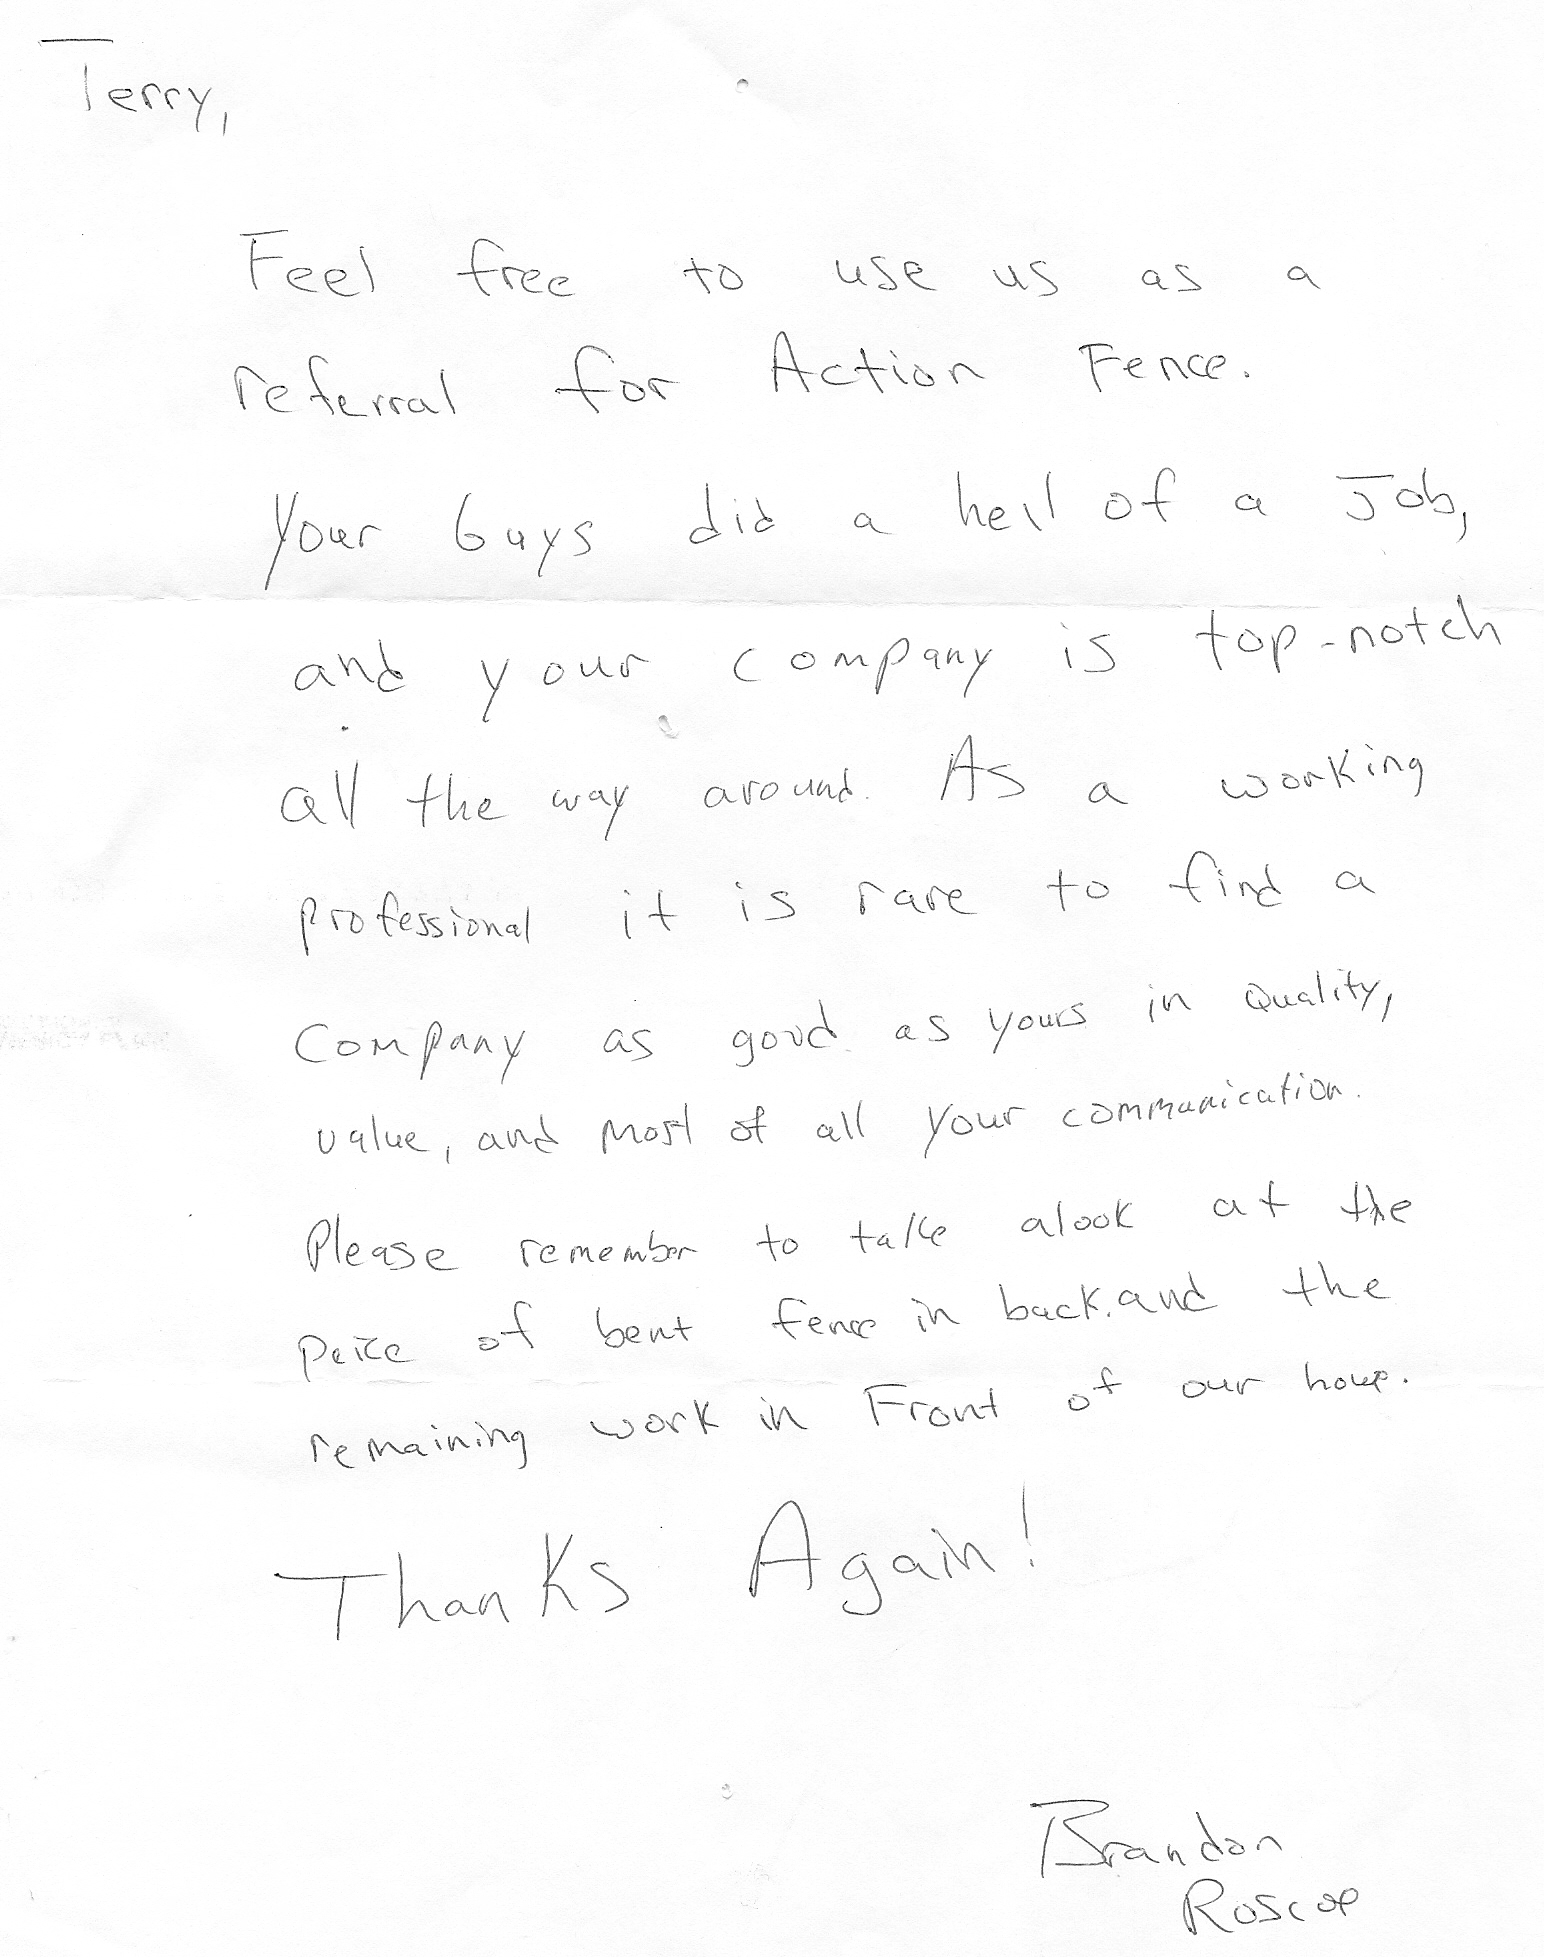 Terry,
Feel free to use us as a
referral for Action Fence.
Your Guys did a hell of a Job,
and your company is top-notch
all the way around. As a working
professional it is rare to find a
Company as good as yours in Quality,
value, and most of all your communication.
Please remember to take alook at the
peice of bent fence in back. and the
remaining work in Front of our house.
Thanks Again!
Brandon
Roscoe